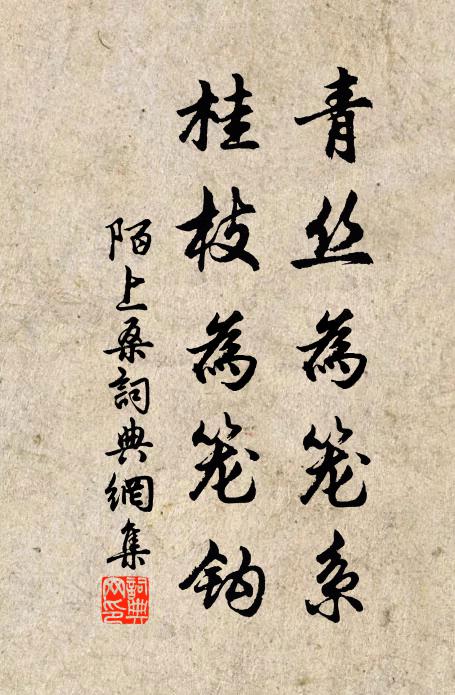 青丝為笼系
桂枝為笼钩
陌上桑詞典網集
詞典网印